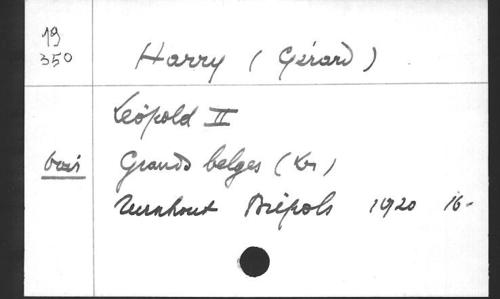 19
350
Harry (Gérard)
Léopold II
voir Grands belges (Les)
Turnhout Brépols 1920 16-